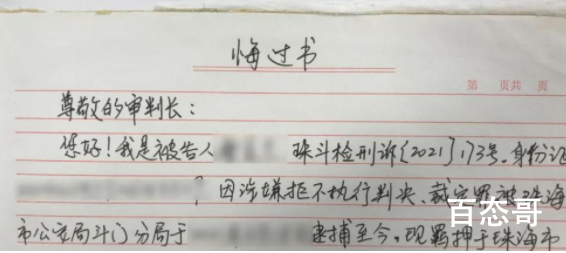 悔过书
第 页共 页
尊敬的审判长：
您好！我是被告人 珠斗检刑诉〔2021〕173号，身份证
？因涉嫌拒不执行判决、裁定罪被珠海
市公安局斗门分局于 逮捕至今，现羁押于珠海市
百态哥